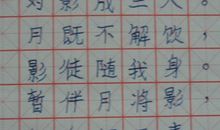 对影成三人。
月既不解饮，
影徒随我身。
暂伴月将影，